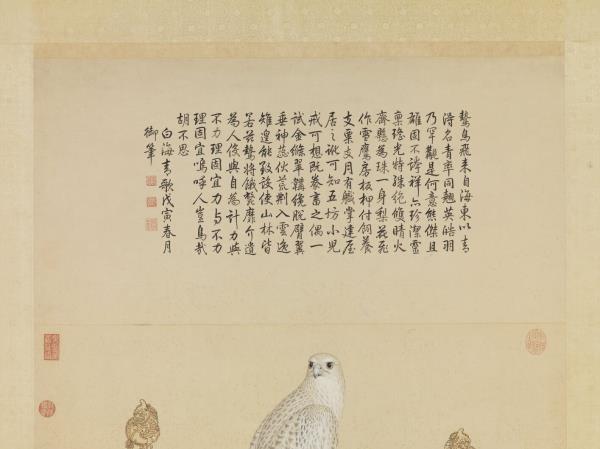 鷙鳥飛来自海東以青
淂名青率同翹英皓羽
乃罕覯是何意態傑且
雄固不誇祥亦珍潔靈
稟瑤光特殊絶傾晴火
齊懸為珠一身梨花
作雪鷹房板柙付飼養
支粟支月有職掌建屋
居之訛可知五坊小児
戒可想既豢畜之偶一
試金絛翠韝繞脫臂翼
垂神伏荒荆入雲逸
雉遑能致設使山林皆
若茲鷙將殲斃靡介遺
為人役與自為計力與
不力理固宜力与不力
理固宜嗚呼人豈鳥哉
胡不思
白海青歌戊寅春月
御筆